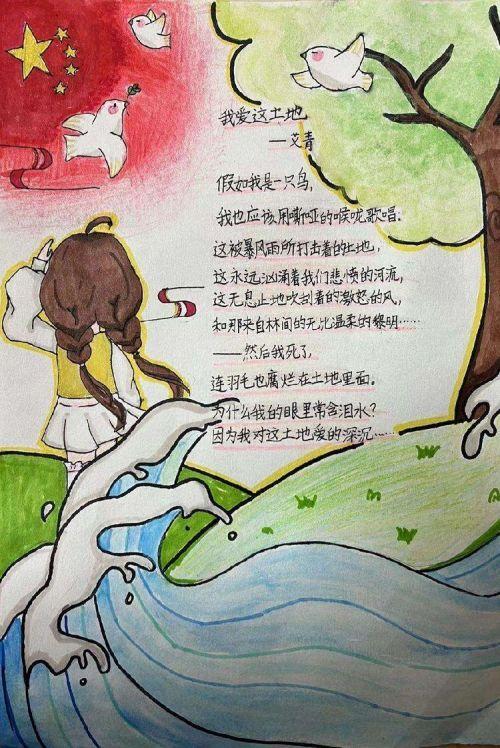 我爱这土地
——艾青
假如我是一只鸟,
我也应该用嘶哑的喉咙歌唱:
这被暴风雨所打击着的土地,
这永远汹涌着我们悲愤的河流,
这无息止地吹刮着的激怒的风,
和那来自林间的无比温柔的黎明……
——然后我死了,
连羽毛也腐烂在土地里面。
为什么我的眼里常含泪水?
因为我对这土地爱的深沉……